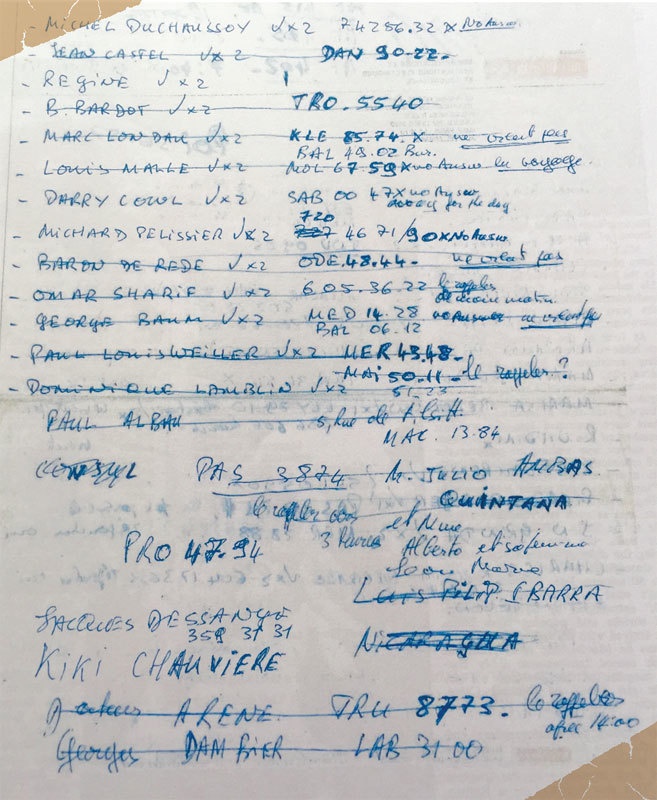 - MICHEL DUCHAUSSOY √x2 74286.32 x No Answ.
- JEAN CASTEL √x2 DAN 90-22-
- REGINE √x2
- B. BARDOT √x2 TRO.5540
- MARC LONDAU √x2 KLE 85.74. X ne vient pas
BAL 49.02 Bur.
- LOUIS MALLE √x2 MOL 67 59 x no Answ en voyage.
- DARRY COWL √x2 SAB 00 47 x no Answ
away for the day.
720
- MICHARD PELISSIER √x2 46 71/90 x No Answ
- BARON DE REDE √x2 ODE.48.44- ne vient pas
- OMAR SHARIF √x2 605.36.22 le rappeler
demain matin
- GEORGE BAUM √x2 MED 14.28 no Answer ne vient pas
BAL 06.12
- PAUL LOUIS WEILLER √x2 MER 43.48-
MAI 50.11- le rappeler ?
- DOMINIQUE LAMBLIN √x2 51.23
PAUL ALBAU 5, Rue de Tilsitt
MAC. 13.84
CONSUL PAS 3874 M. JULIO
QUINTANA
le rappeler dans
3 heures
et Mme
PRO 47.94 Alberto et sa femme
Leon Maria
Luis FILIP EBARRA
JACQUES DESSANGE
359 31 31
NICARAGUA
KIKI CHAUVIERE
ARENE TRU 8773. le rappeler
après 14:00
Georges DAMBIER LAB 31.00